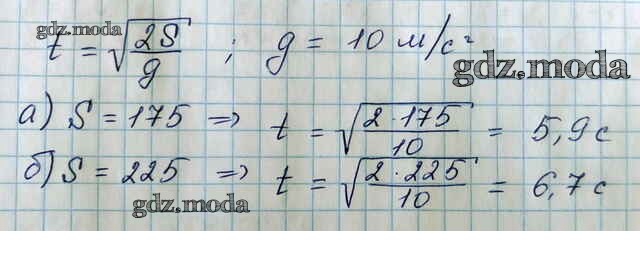 gdz.moda
t = √(2S/g) ; g = 10 м/с²
gdz.moda
а) S = 175 => t = √(2·175/10) = 5,9 с
б) S = 225 => t = √(2·225/10) = 6,7 с
gdz.moda